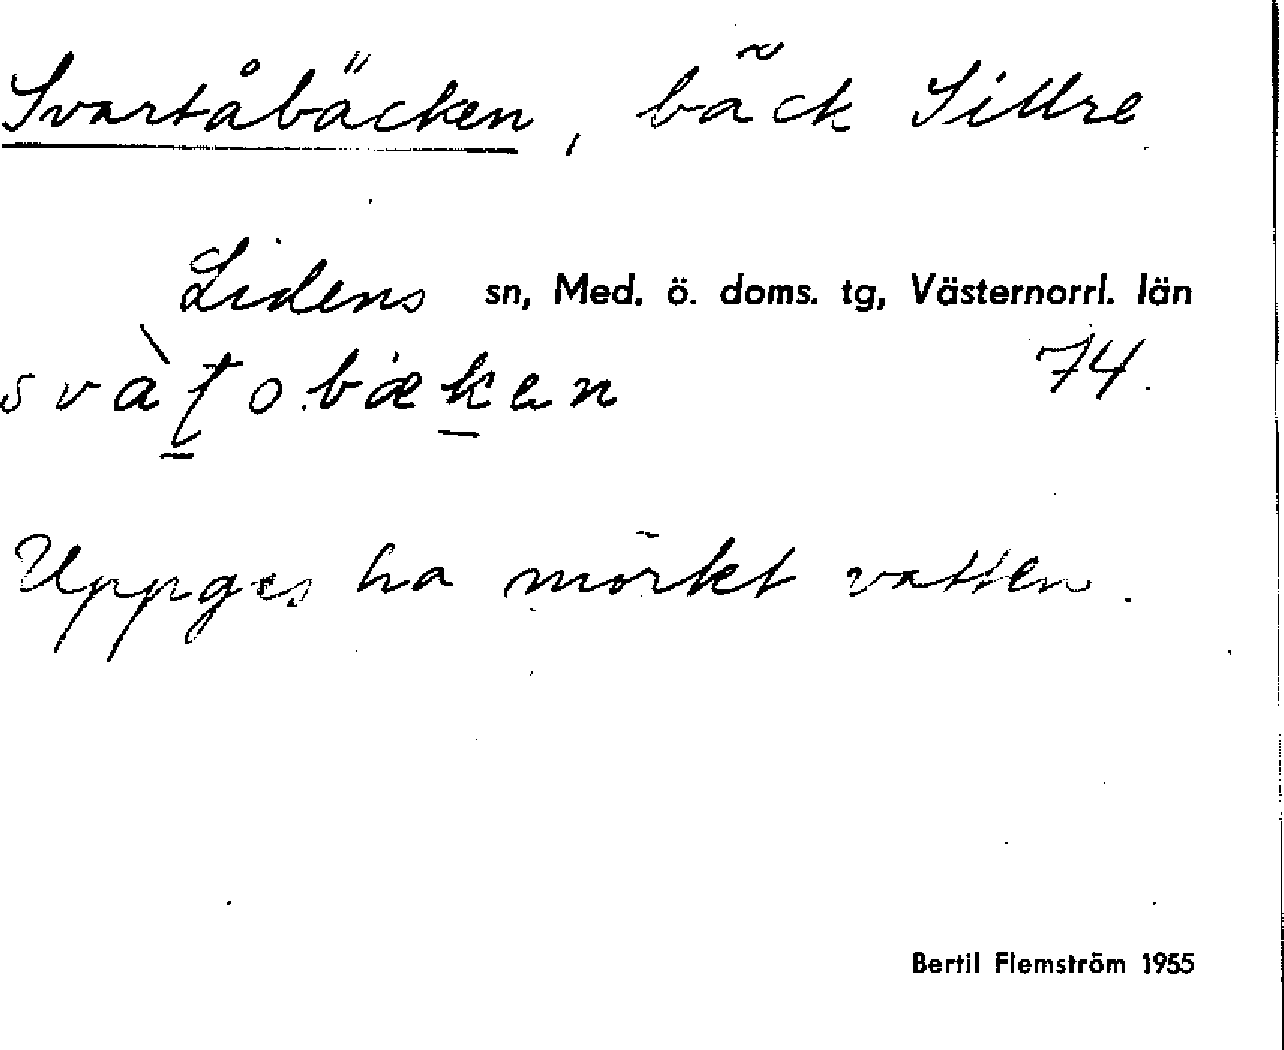 Svartåbäcken, bäck Sillre
Lidens sn, Med. ö. doms. tg, Västernorrl. län
svàƭobækan 74.
Uppges ha mörkt vatten.
Bertil Flemström 1955